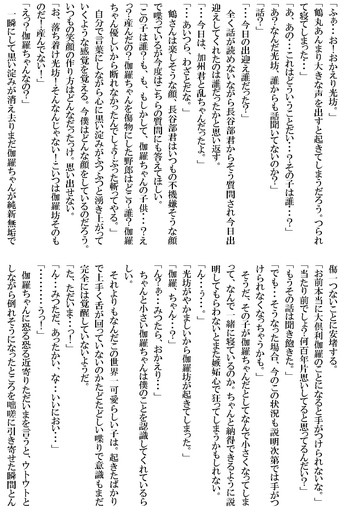 「ふぁ…お！おかえり光坊。」
鶴丸あんまり大きな声を出すと起きてしまうだろう。つられ
て寝てしまった…」
「あ、あの…これはどういうことだい…？その子は誰…？」
「あ？なんだ光坊、誰からも話聞いてないのか？」
「話？」
「…今日の出迎え誰だったか？」
全く話が読めないながら長谷部君からそう質問され今日出
迎えしてくれたのは誰だったかと思い返す。
「…今日は、加州君と乱ちゃんだったよ」
「…あいつら、わざとだな。」
鶴さんは楽しそうに、長谷部君はいつもの不機嫌そうな顔
で喋っているが今度はこちらの質問にも答えてほしい。
「この子は誰？も、も、もしかして、伽羅ちゃんの子供…？え
っ？産んだの？伽羅ちゃんを傷物にした野郎はどこ？誰？伽羅
ちゃん優しいから断れなかったんでしょうぶった斬ってやる。」
自分で言葉にしながら心に黒い淀みがふつふつと湧き上がって
いくような感覚を覚える。今僕はどんな顔をしているのだろう。
いつもの笑顔の作り方はどんなだったっけ。思い出せない。
「お、落ち着け光坊！そんなんじゃない！こいつは伽羅坊そのも
のだ！産んでない！」
「えっ？伽羅ちゃんなの？」
一瞬にして黒い淀みが消え去りまだ伽羅ちゃんが純新無垢で
傷一つないことに安堵する。
「お前本当に大倶利伽羅のことになると手がつけられないな。」
「当たり前でしょ？何百年片思いしてると思ってるんだい？」
「もうその話は聞き飽きた。」
「でも…そうなった場合、今のこの状況も説明次第では手がつ
けられなくなっちゃうかも。」
そうだ、その子が伽羅ちゃんだとしてなんで小さくなってしま
って、なんで一緒に寝ているのか、ちゃんと納得できるように説
明してもらわないとまた嫉妬心で狂ってしまうかもしれない。
「ん…う…。」
「光坊がやかましいから伽羅坊が起きてしまった。」
「伽羅、ちゃん…？」
「ん？ぁ…みつたら、おかえり…」
ちゃんと小さい伽羅ちゃんは僕のことを認識してくれているら
しい。
それよりもなんだこの現界一可愛らしい子は。起きたばかり
で上手く舌が回っていないのかたどたどしい喋りで意識もまだ
完全には覚醒していないようだ。
「た、ただいま…っ！」
「ん…みつただ、あったかい、な…いいにおい…」
「………うっ！」
伽羅ちゃんに恐る恐る近寄りただいまを言うと、ウトウトと
しながら倒れそうになったところを咄嗟に引き寄せた瞬間とん